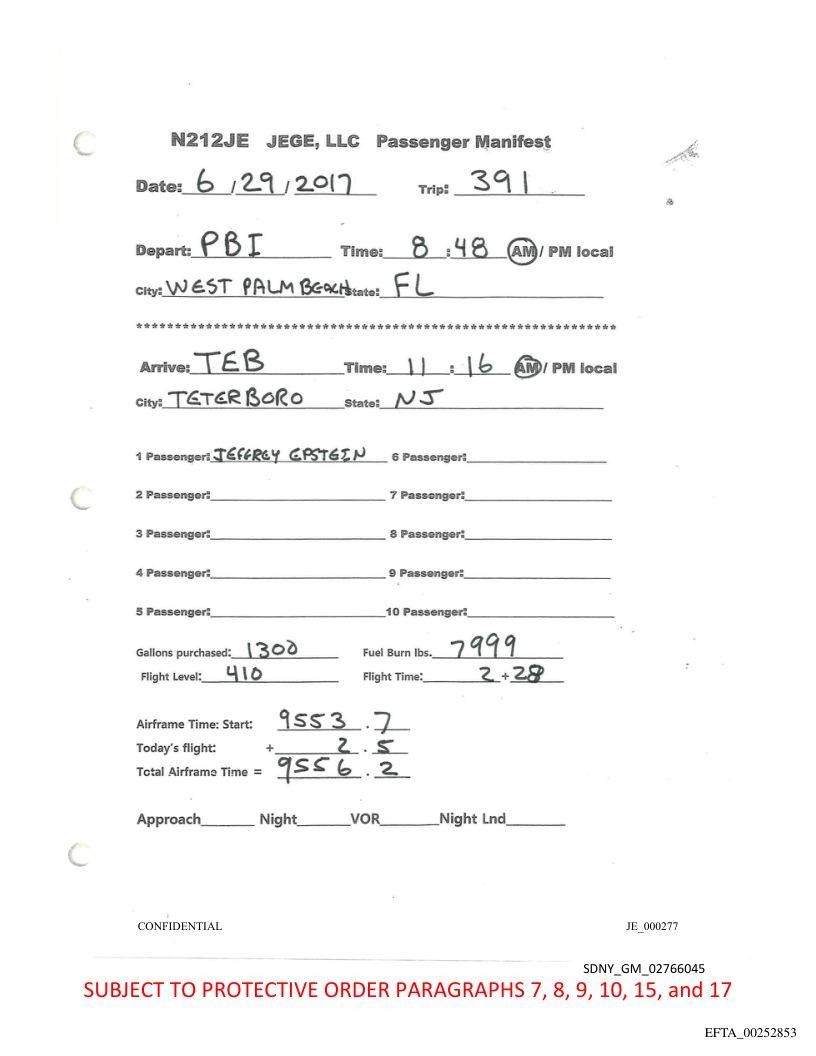 N212JE JEGE, LLC Passenger Manifest
Date: 6 / 29 / 2017 Trip: 391
Depart: PBI Time: 8 : 48 AM / PM local
City: WEST PALM BEACH State: FL
***************************************************************
Arrive: TEB Time: 11 : 16 AM / PM local
City: TETERBORO State: NJ
1 Passenger: JEFFREY EPSTEIN 6 Passenger:
2 Passenger: 7 Passenger:
3 Passenger: 8 Passenger:
4 Passenger: 9 Passenger:
5 Passenger: 10 Passenger:
Gallons purchased: 1300 Fuel Burn lbs. 7999
Flight Level: 410 Flight Time: 2 + 28
Airframe Time: Start: 9553 . 7
Today's flight: + 2 . 5
Total Airframe Time = 9556 . 2
Approach Night VOR Night Lnd
CONFIDENTIAL JE_000277
SDNY_GM_02766045
SUBJECT TO PROTECTIVE ORDER PARAGRAPHS 7, 8, 9, 10, 15, and 17
EFTA_00252853